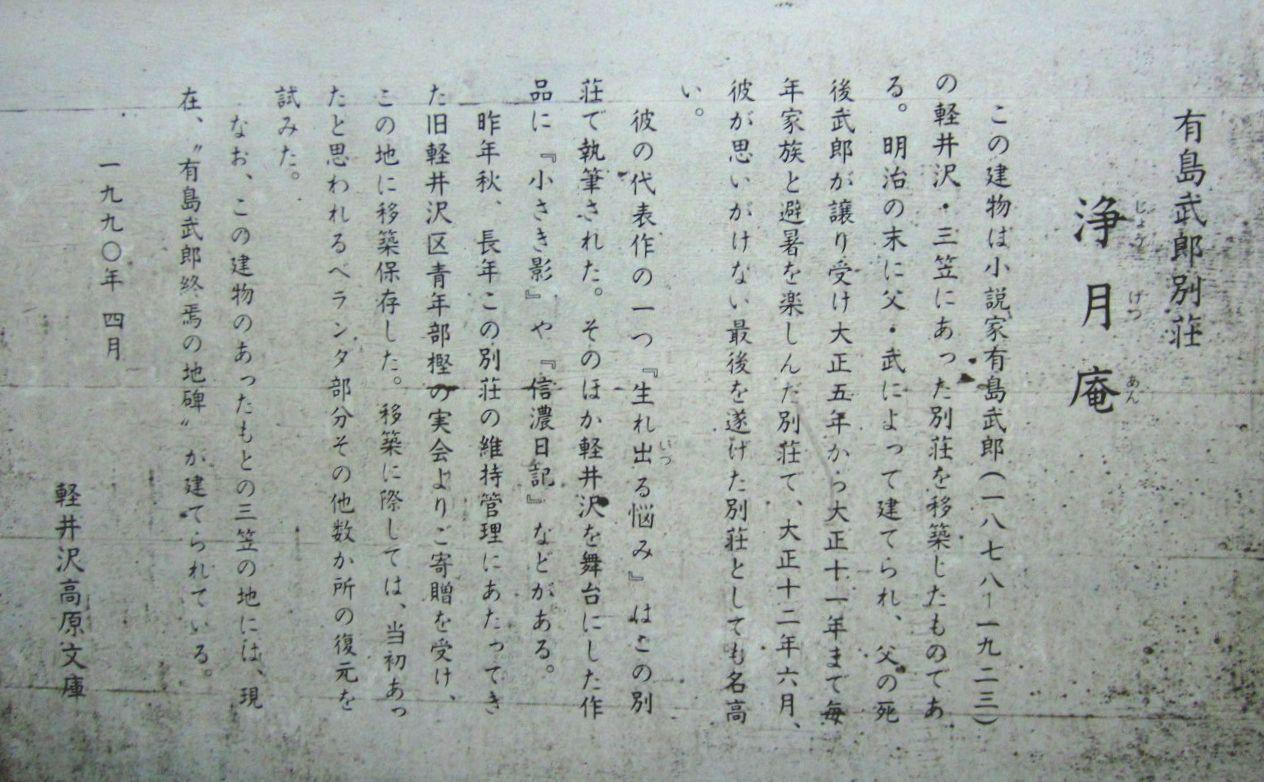 有島武郎別荘
浄月庵
じょう げつ あん
この建物は小説家有島武郎(一八七八-一九二三)
の軽井沢・三笠にあった別荘を移築したものであ
る。明治の末に父・武によって建てられ、父の死
後武郎が譲り受け大正五年から大正十一年まで毎
年家族と避暑を楽しんだ別荘で、大正十二年六月、
彼が思いがけない最後を遂げた別荘としても名高
い。
彼の代表作の一つ『生れ出る悩み』はこの別
いづ
荘で執筆された。そのほか軽井沢を舞台にした作
品に『小さき影』や『信濃日記』などがある。
昨年秋、長年この別荘の維持管理にあたってき
た旧軽井沢区青年部樫の実会よりご寄贈を受け、
この地に移築保存した。移築に際しては、当初あっ
たと思われるベランダ部分その他数か所の復元を
試みた。
なお、この建物のあったもとの三笠の地には、現
在、〝有島武郎終焉の地碑〟が建てられている。
一九九〇年 四月
軽井沢高原文庫